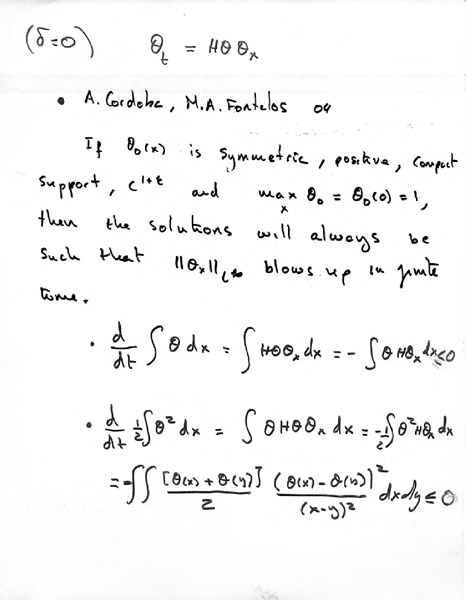 (δ=0) θ_t = Hθ θ_x
• A. Cordoba, M.A. Fontelos 04
If θ₀(x) is symmetric, positive, compact
support, C^{1+ε} and max_x θ₀ = θ₀(0) = 1,
then the solutions will always be
such that ||θ_x||_{L^∞} blows up in finite
time.
· d/dt ∫ θ dx = ∫ Hθ θ_x dx = - ∫ θ Hθ_x dx ≤ 0
· d/dt ½ ∫ θ² dx = ∫ θ Hθ θ_x dx = -½ ∫ θ² Hθ_x dx
= -∬ [θ(x) + θ(y)]/2 (θ(x) - θ(y))²/(x-y)² dx dy ≤ 0